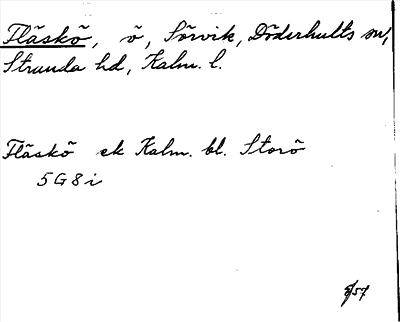 Fläskö, ö, Sörvik, Döderhults sn,
Stranda hd, Kalm. l.
Fläskö ek Kalm. bl. Storö
5G8i